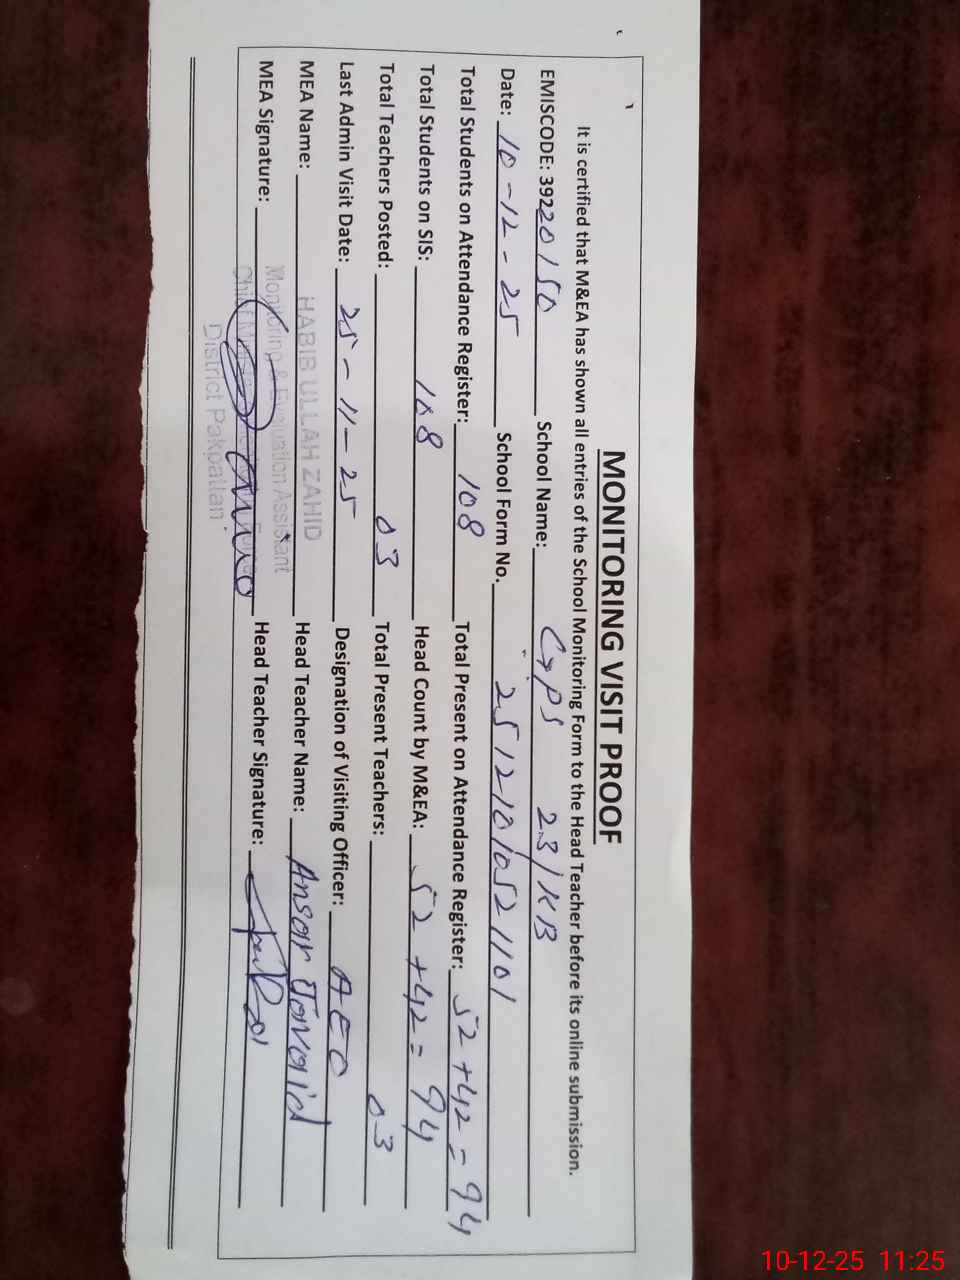 MONITORING VISIT PROOF
It is certified that M&EA has shown all entries of the School Monitoring Form to the Head Teacher before its online submission.
EMISCODE: 39220150 School Name: GPS 23/KB
Date: 10-12-25 School Form No. 25121010521101
Total Students on Attendance Register: 108 Total Present on Attendance Register: 52+42=94
Total Students on SIS: 108 Head Count by M&EA: 52+42=94
Total Teachers Posted: 03 Total Present Teachers: 03
Last Admin Visit Date: 25-11-25 Designation of Visiting Officer: AEO
MEA Name: HABIB ULLAH ZAHID Head Teacher Name: Ansar Javaid
Monitoring & Evaluation Assistant
MEA Signature: Head Teacher Signature:
District Pakpattan
10-12-25 11:25